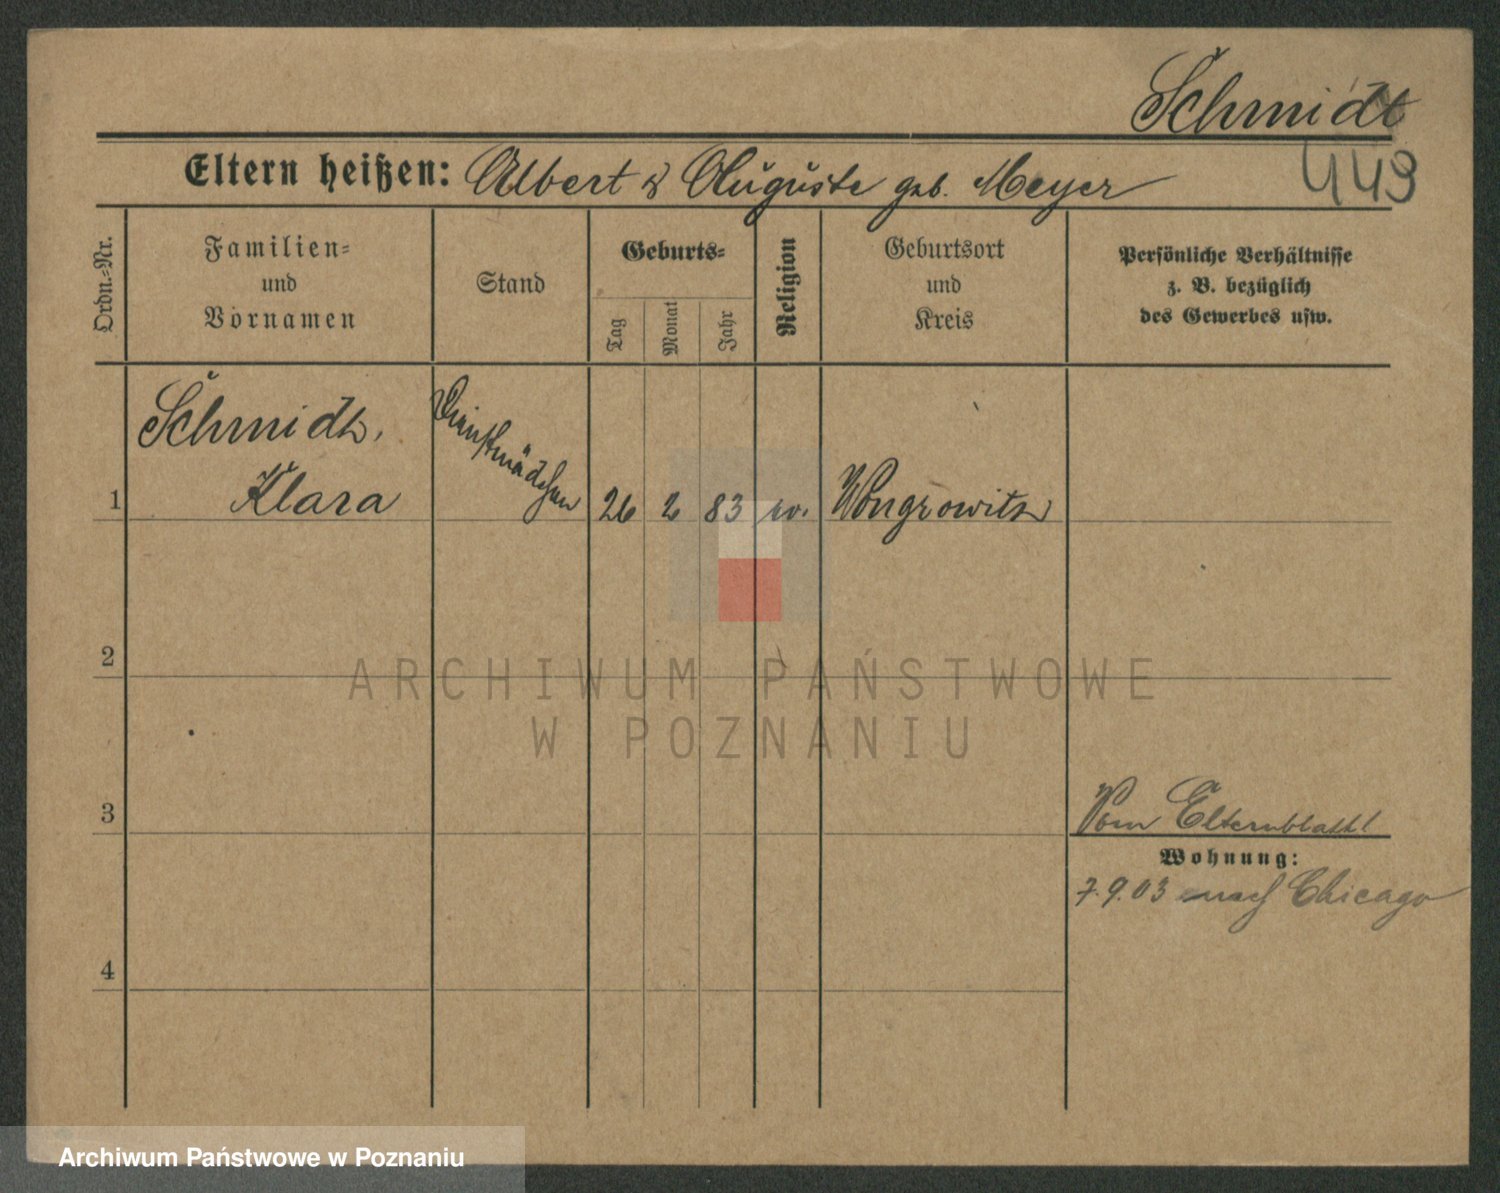 Schmidt
443
Eltern heißen: Albert & Auguste geb. Meyer
Ordn.-Nr.
Familien-
und
Vornamen
Stand
Geburts-
Tag
Monat
Jahr
Religion
Geburtsort
und
Kreis
Persönliche Verhältnisse
z. B. bezüglich
des Gewerbes usw.
Schmidt,
Klara
Dienstmädchen
1
26 2 83 ev. Wongrowitz
2
ARCHIWUM PAŃSTWOWE
W POZNANIU
3
Vom Elternblatt
Wohnung:
7.9.03 nach Chicago
4
Archiwum Państwowe w Poznaniu